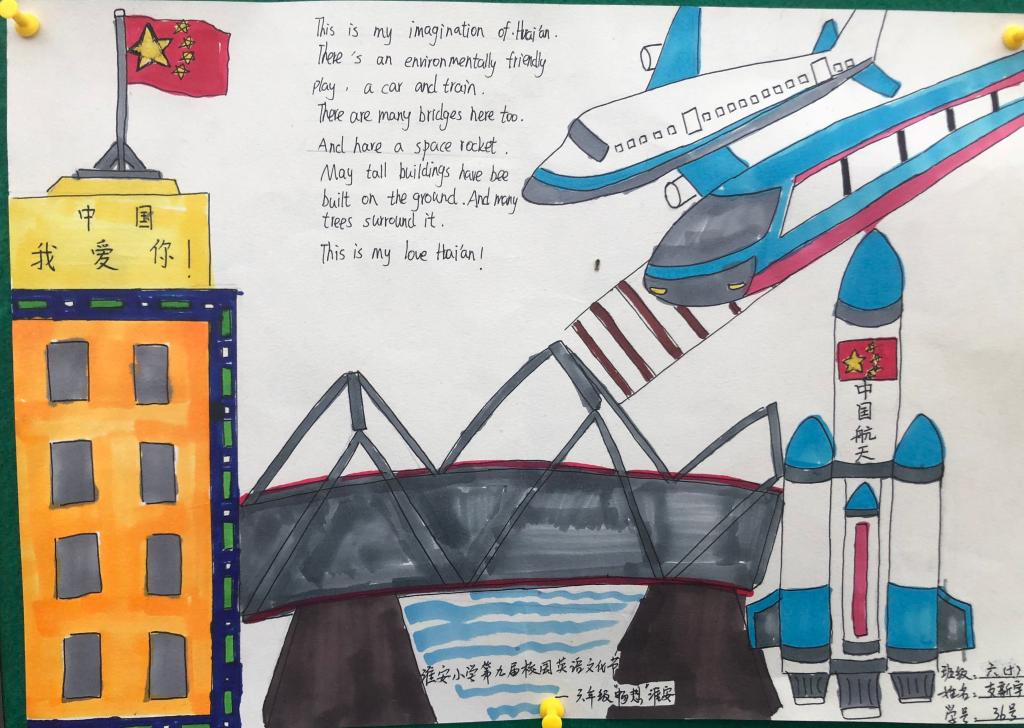 This is my imagination of Huai'an.
There's an environmentally friendly
play, a car and train.
There are many bridges here too.
And have a space rocket.
May tall buildings have bee
built on the ground. And many
trees surround it.
This is my love Huai'an!
中国
我爱你!
中国航天
淮安小学第九届校园英语文化节
—六年级畅想"淮安
班级: 六(1)
姓名: 支新宇
学号: 36号